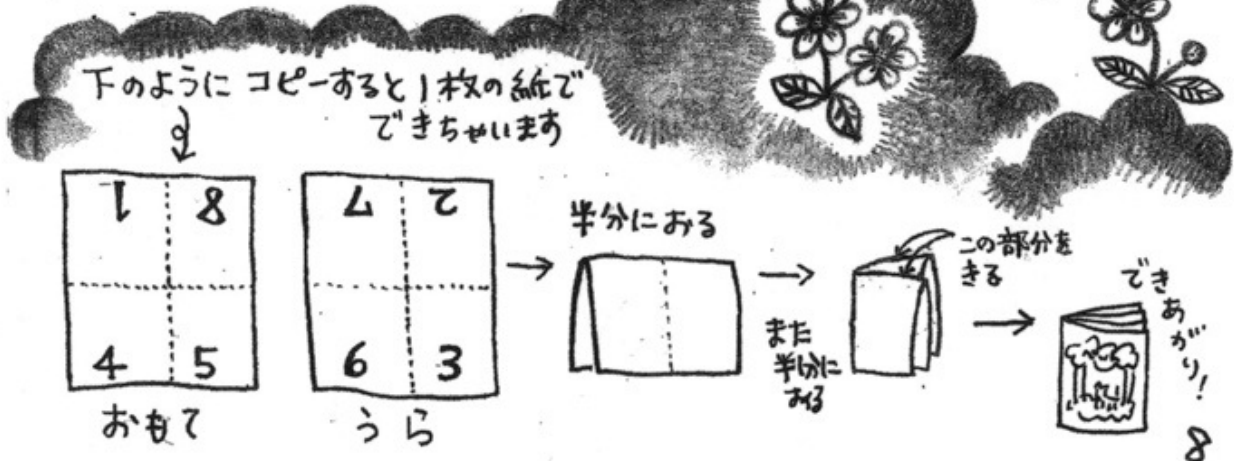 下のように コピーすると 1枚の紙で
できちゃいます
1 8
4 5
おもて
7 2
6 3
うら
半分におる
また
半分に
おる
この部分を
きる
できあがり!
8